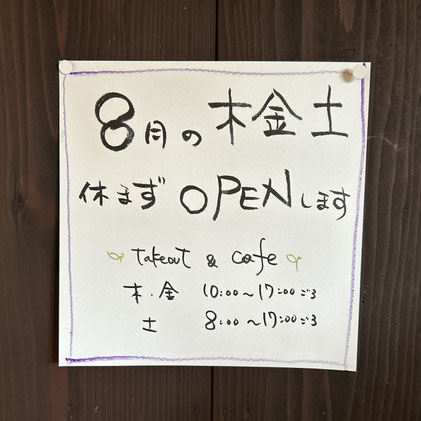 8月の木金土
休まずOPENします
takeout & cafe
木・金 10:00~17:00ごろ
土 8:00~17:00ごろ